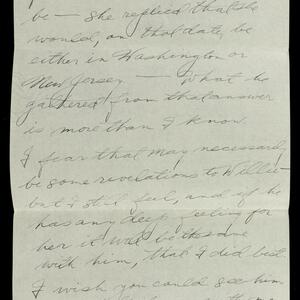 be — she replied that she
would, on that date, be
either in Washington or
New Jersey — What he
gathered from that answer
is more than I know.
I fear that may necessarily
be some revelations to Willie —
but I still feel, and if he
has any deep feeling for
her it will be the same
with him, that I did best.
I wish you could see him